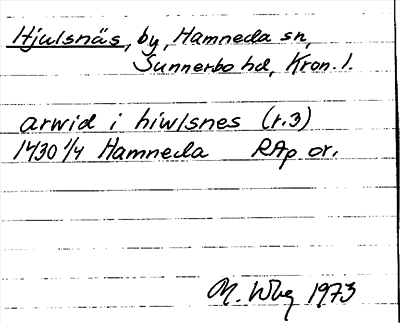 Hjulsnäs, by, Hamneda sn,
Sunnerbo hd, Kron. l.
arwid i hiwlsnes (r.3)
1430 1/4 Hamneda RAp or.
M. Wbg 1973